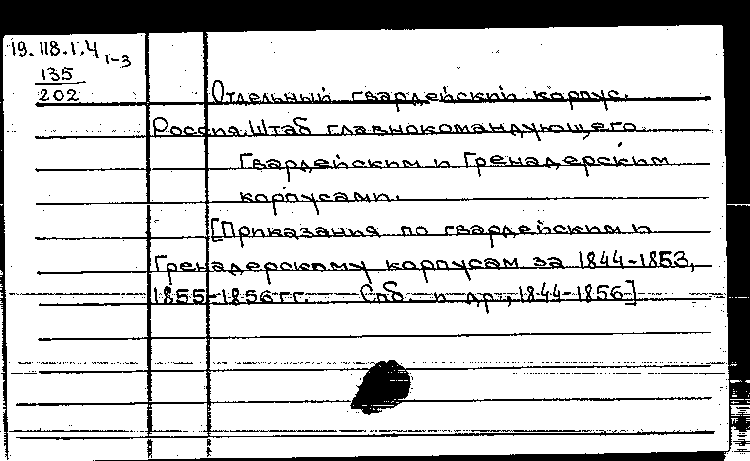 19.118.1.4 1-3
135
202
Отдельный гвардейский корпус.
Россия. Штаб главнокомандующего
Гвардейским и Гренадерским
корпусами.
[Приказания по гвардейским и
Гренадерскому корпусам за 1844-1853,
1855-1856 гг. Спб. и др., 1844-1856]